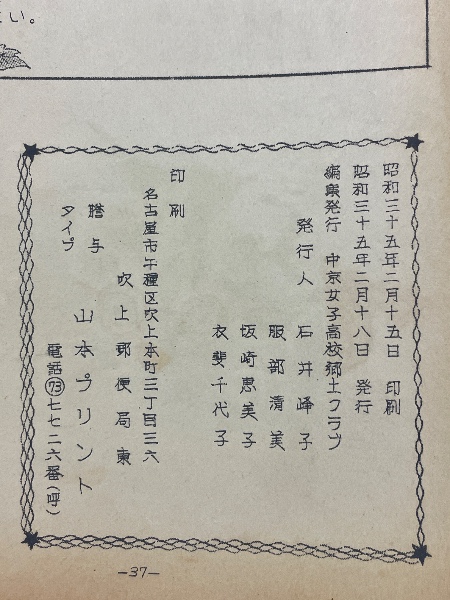 さい。
昭和三十五年二月十五日 印刷
昭和三十五年二月十八日 発行
編集発行 中京女子高校郷土クラブ
発行人 石井峰子
服部清美
坂崎恵美子
衣斐千代子
印刷
名古屋市千種区吹上本町三丁目三六
吹上郵便局東
謄写
タイプ
山本プリント
電話73七七二六番(呼)
—37—